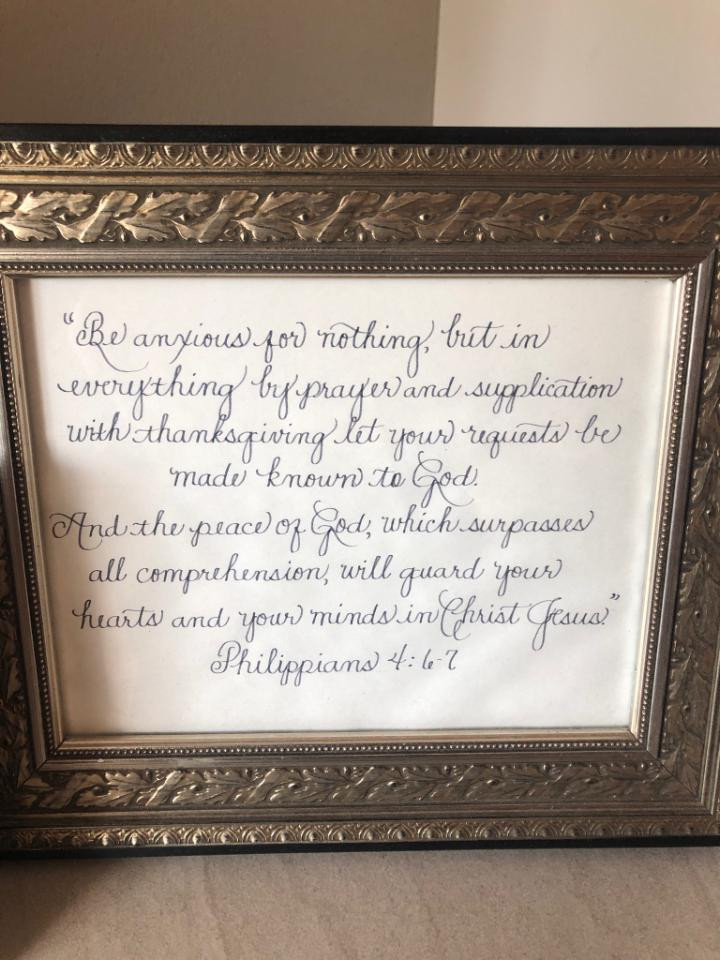 "Be anxious for nothing, but in
everything by prayer and supplication
with thanksgiving let your requests be
made known to God.
And the peace of God, which surpasses
all comprehension, will guard your
hearts and your minds in Christ Jesus."
Philippians 4:6-7